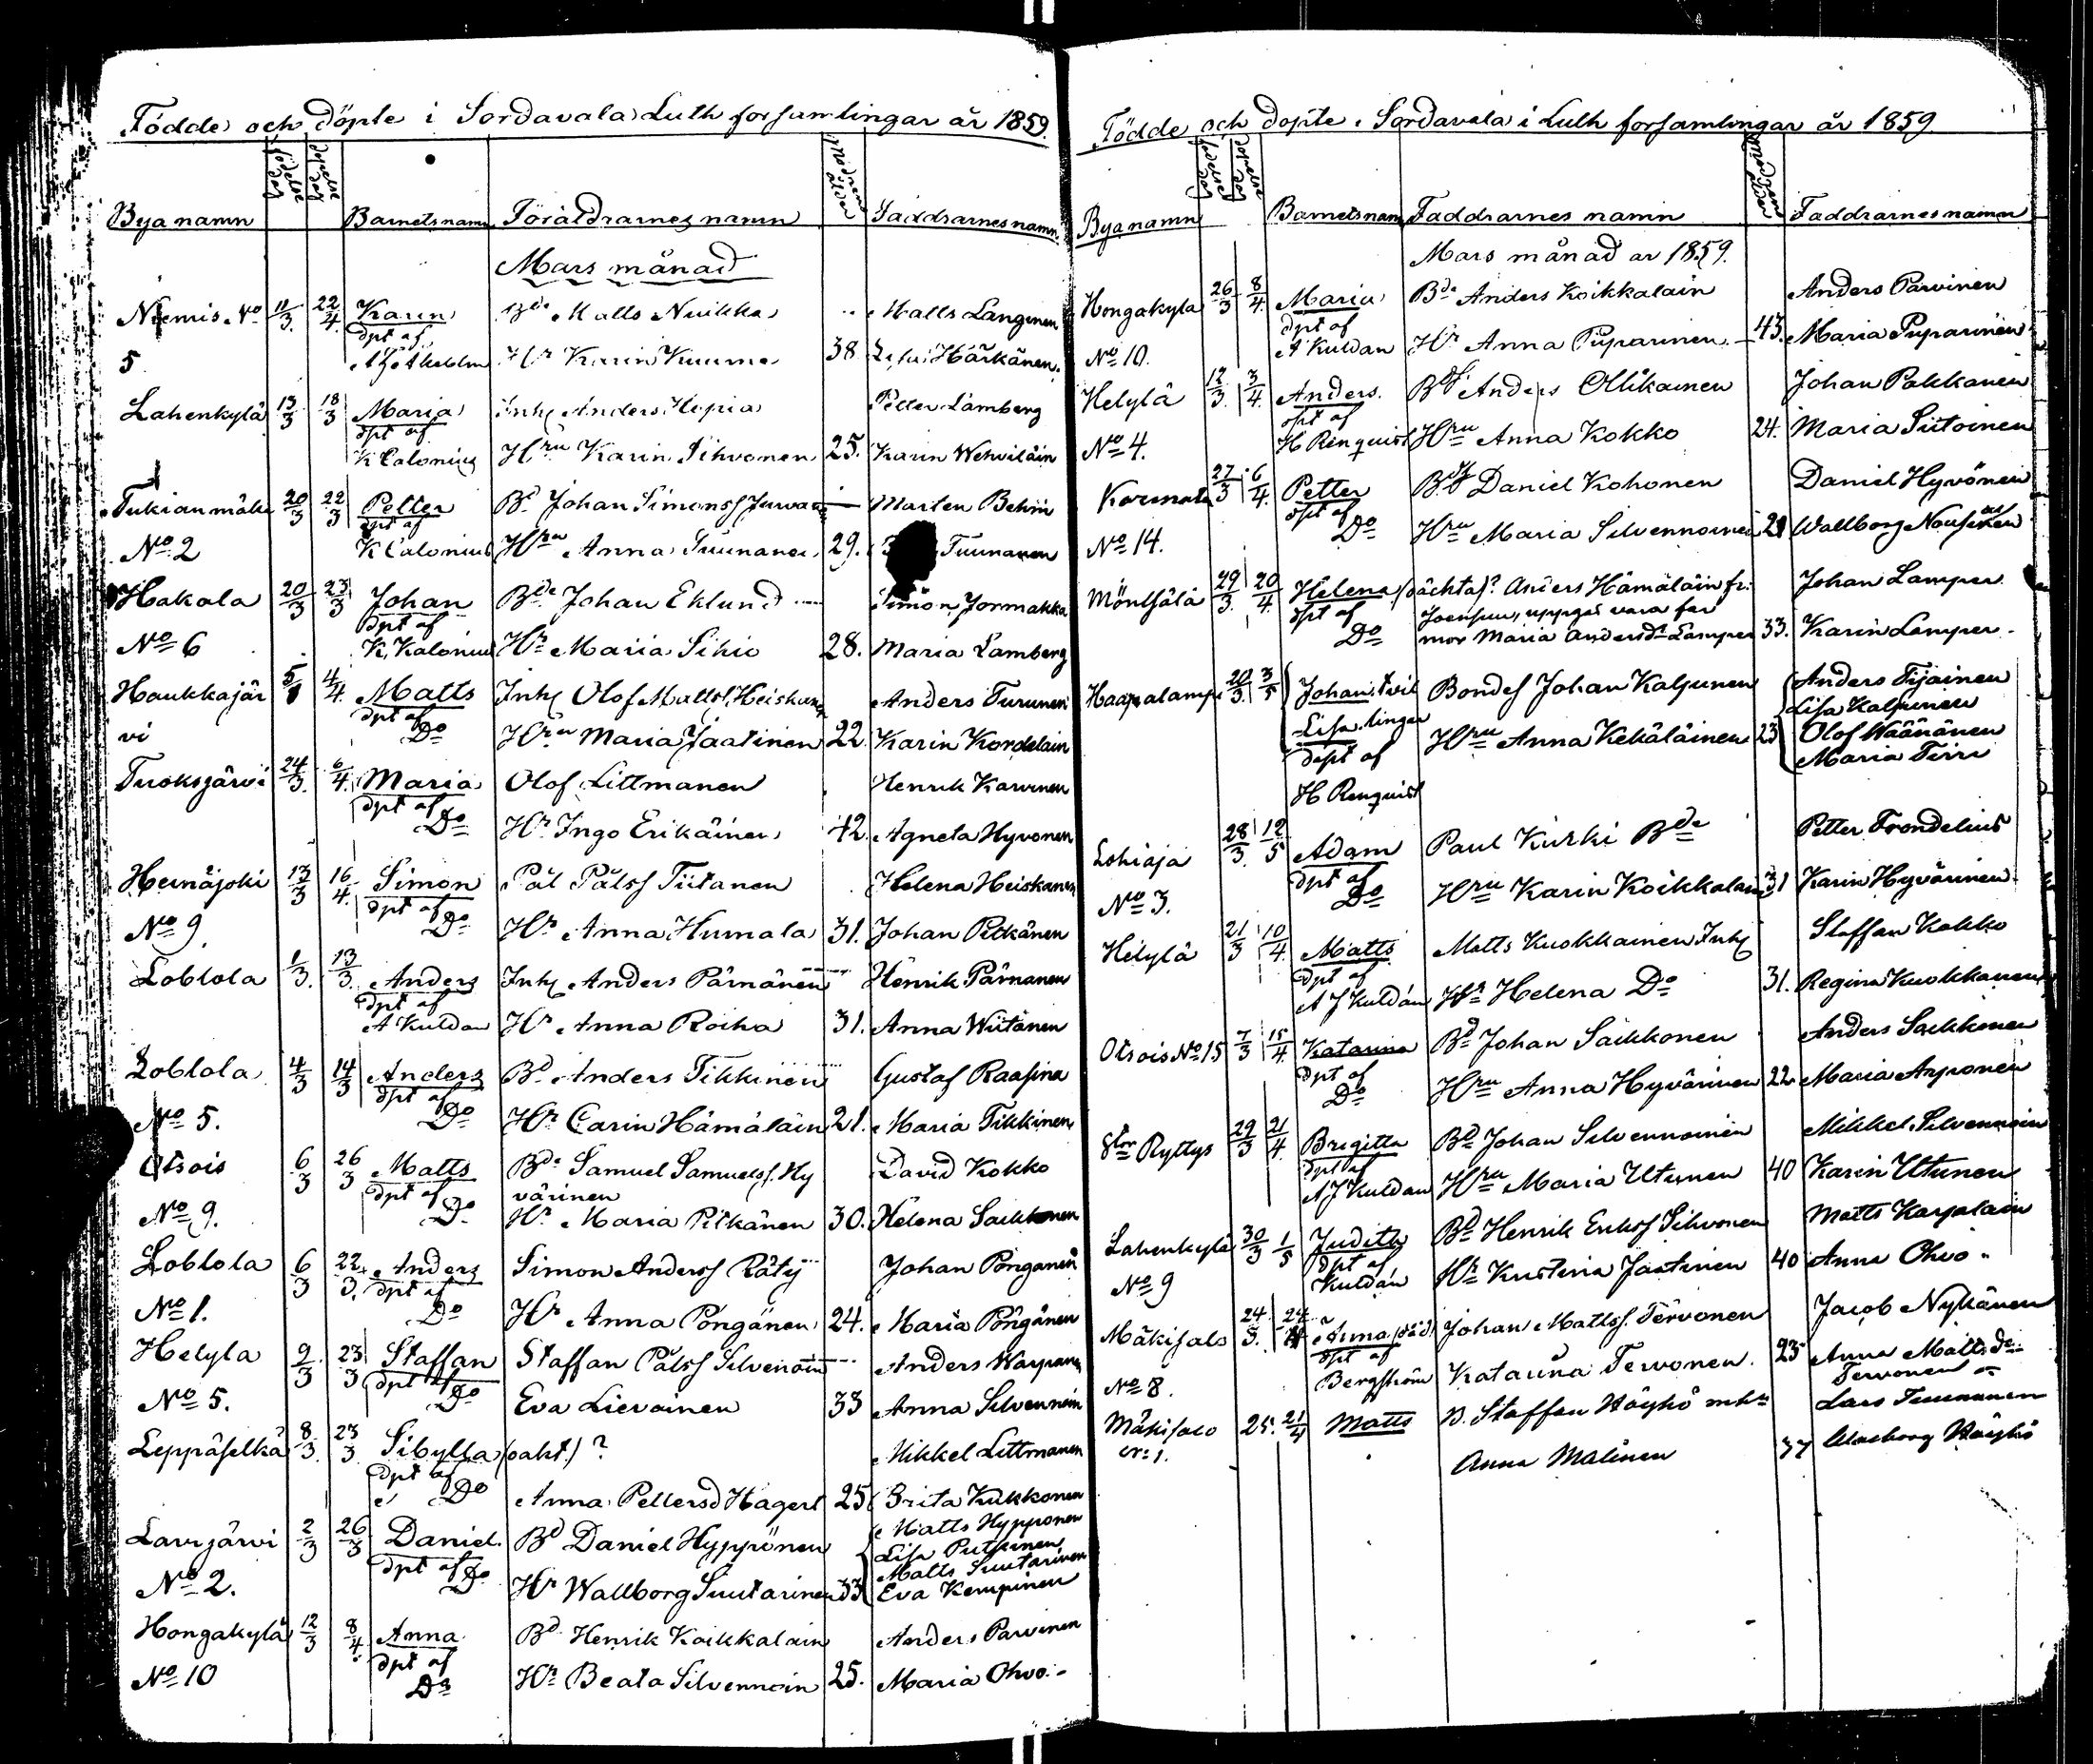 Födde och döpte i Sordavala Luth forsamlingar år 1859.
Bya namn födelse dag döpelse dag Barnets namn Föräldrarnes namn Modrens ålder Faddrarnes namn
Mars månad
Niemis No 11/3. 22/4 Karin Bde Matts Nuikka Matts Langinen
dpt af
5 Hr Karin Kuurma 38 Härkänen.
Lahenkylä 13/3 18/3 Maria Inh Anders Hepia Petter Lamberg
dpt af
K Calonius Hru Karin Sihvonen 25. Karin Wehviläin
Tukianmäki 20/3 22/3 Petter Bd Johan Simonss Marten Behm
dpt af
No 2 K Calonius Hru Anna Tuunanen 29. Tuunanen
Hakala 20/3 23/3 Johan Bde Johan Eklund Simon Jormakka
dpt af
No 6 K. Kalonius Hr Maria Sihvo 28. Maria Lamberg
Haukkajär 4/4. Matts Inh Olof Mattss Heiskanen Anders Turunen
dpt af
vi Do Hru Maria Jaatinen 22 Karin Kordelain
Tuoksjärvi 24/3. 6/4. Maria Olof Littmanen Henrik Karvinen
dpt af
Do Hr Ingo Erikäinen 42. Agneta Hyvonen
Heinäjoki 13/3 16/4. Simon Pål Pålss Tiitanen Helena Heiskanen
dpt af
No 9. Do Hr Anna Humala 31. Johan Pitkänen
Loblola 1/3. 13/3. Anders Inh Anders Pärnänen Henrik Pärnanen
dpt af
A Kuldan Hr Anna Roiha 31. Anna Wiitanen
Loblola 4/3 14/3 Anders Bd Anders Tikkinen Gustaf Raasina
dpt af
No 5. Do Hr Carin Hämäläin 21. Maria Tikkinen
Otsois 6/3 26/3 Matts Bde Samuel Samuelss. Hy David Kokko
dpt af värinen
No 9. Do Hr Maria Pitkänen 30. Helena Saikkonen
Loblola 6/3 22/3. Anders Simon Anderss Räty Johan Pöngänen
dpt af
No 1. Do Hr Anna Pöngänen 24. Maria Pöngänen
Helyla 9/3 23/3 Staffan Staffan Pålss Silvenoin Anders
dpt af
No 5. Do Eva Lievoinen 33 Anna Silvennoin
Leppäselkä 8/3. 23/3 Sibylla (oäkt.) ? Mikkel Littmanen
dpt af
Do Anna Pettersd Hagert 25 Brita Kukkonen
Lavijärvi 2/3 26/3 Daniel. Bd Daniel Hyppönen Matts Hypponen
dpt af Lisa Putsinen
No 2. Do Matts Suutarinen
Hr Wallborg Suutarinen 33 Eva Kempinen
Hongakylä 12/3 8/4. Anna Bd Henrik Koikkalain Anders Parvinen
dpt af
No 10 Do Hr Beata Silvennoin 25. Maria Ohvo.
Födde och dopte i Sordavala i Luth forsamlingar år 1859
Bya namn födelse dag döpelse dag Barnets namn Faddrarnes namn Modrens ålder Faddrarnes namn
Mars månad ar 1859.
Hongakyla 26/3 8/4. Maria Bde Anders Koikkalain Anders Parvinen
dpt af
No 10. A Kuldan Hr Anna Puparinen 43. Maria Puparinen
Helylä 12/3. 3/4. Anders. Anders Ollikainen Johan Pakkanen
dpt af
No 4. H Renquist Hru Anna Kokko 24. Maria Siitoinen
27/3 6/4. Petter Daniel Kohonen Daniel Hyvönen
dpt af
No 14. Do Hru Maria Silvennoinen 29 Wallborg
29/3. 20/4. Helena (oächta)? Anders Hämäläin fr. Johan Lamper
dpt af Joensuu, uppges vara far
Do mor Maria Andersdr Lamper 33. Karin Lamper.
Haapalampi 20/3. 3/5 Johan tvil Bondes Johan Kaljunen Anders Tijainen
Lisa lingar Lisa Kaljunen
dopt af Hru Anna Kekäläinen 23 Olof Wäänänen
Maria Tirri
H Renquist
Lohioja 28/3. 12/5 Adam Paul Kurki Bde Petter Frondelius
dpt af
No 3. Do Hru Karin Koikkalain 31 Karin Hyvärinen
Helylä 21/3 10/4. Matts Matts Kuokkainen Inh Staffan Kokko
dpt af
A J Kuldán Hr Helena Do 31. Regina Kuokkanen
Otsois No 15 7/3 15/4. Katarina Bd Johan Saikkonen Anders Saikkonen
dpt af
Do Hru Anna Hyvärinen 22 Maria Asponen
Ryttys 29/3 21/4. Brigitta Bd Johan Silvennoinen Mikkel Silvennoin
dpt af
A J Kuldan Hru Maria Utunen 40 Karin Utunen
Lahenkylä 30/3 1/5 Judith Bd Henrik Erikss Sihvonen Matts Karjalain
dpt af
No 9 Kuldán Hr Kristina Jaatinen 40 Anna Ohvo
Mäkisalo 24/3. Anna Johan Mattss. Tervonen Jacob Nykänen
dpt af
No 8. Bergström Katarina Tervonen. 23 Anna Matts dr
Tervonen
Mäkisalo 25. 21/4 Matts B. Staffan Häyhö Lars
No 1. Anna Malinen 37 Häyhö